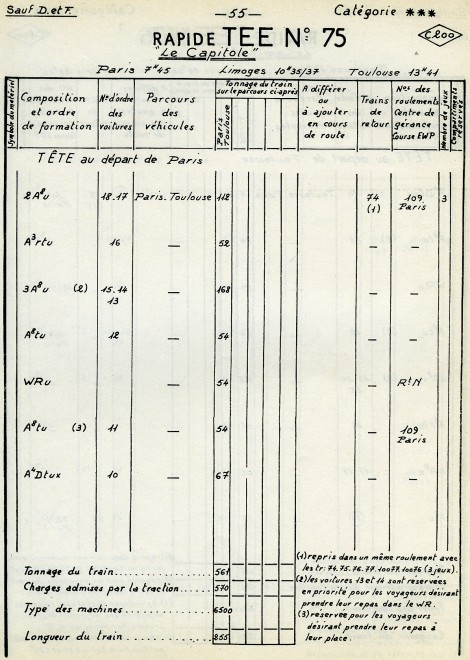 Sauf D. et F. — 55 — Catégorie ***
RAPIDE TEE N° 75
"Le Capitole"
C200
Paris 7H45 Limoges 10H35/37 Toulouse 13H41
Symbole du matériel
Composition et ordre de formation
Nos d'ordre des voitures
Parcours des véhicules
Tonnage du train sur le parcours ci-après
Paris Toulouse
A différer ou à ajouter en cours de route
Trains de retour
Nos des roulements Centre de gérance Course EWP
Nombre de jeux
Compartiments réservés
TÊTE au départ de Paris
2A8u 18.17 Paris.Toulouse 112 74 (1) 109 Paris 3
A3rtu 16 — 52 — —
3A8u (2) 15.14 13 — 168 — —
A8tu 12 — 54 — —
WRu — 54 — RIN
A8tu (3) 11 — 54 — 109 Paris
A4Dtux 10 — 67 — —
Tonnage du train 561
Charges admises par la traction 570
Type des machines 6500
Longueur du train 255
(1) repris dans un même roulement avec
les tr: 74.75.76.77.10077.10076 (3 jeux).
(2) les voitures 13 et 14 sont réservées
en priorité pour les voyageurs désirant
prendre leur repas dans le WR.
(3) réservée pour les voyageurs
désirant prendre leur repas à
leur place.